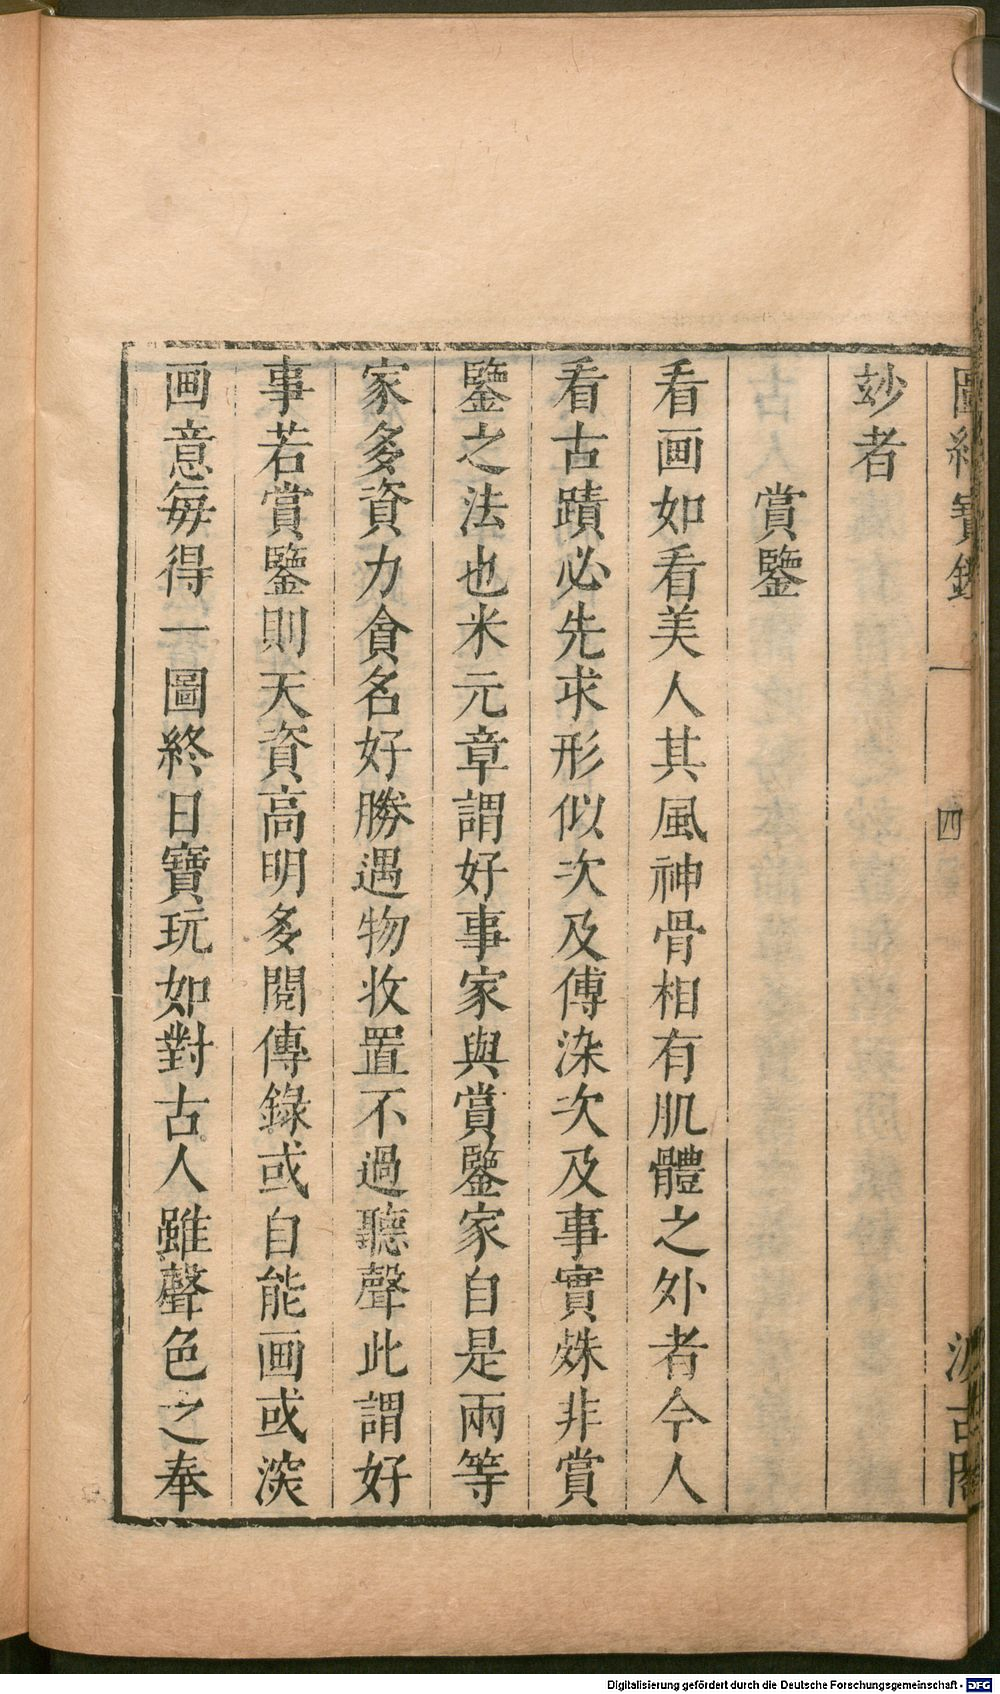 圖繪寶鑑 一 四 汲古閣
玅者
賞鑒
看画如看美人其風神骨相有肌體之外者今人
看古蹟必先求形似次及傅染次及事實殊非賞
鑒之法也米元章謂好事家與賞鑒家自是兩等
家多資力貪名好勝遇物收置不過聽聲此謂好
事若賞鑒則天資高明多閱傳錄或自能画或深
画意每得一圖終日寶玩如對古人雖聲色之奉
Digitalisierung gefördert durch die Deutsche Forschungsgemeinschaft - DFG